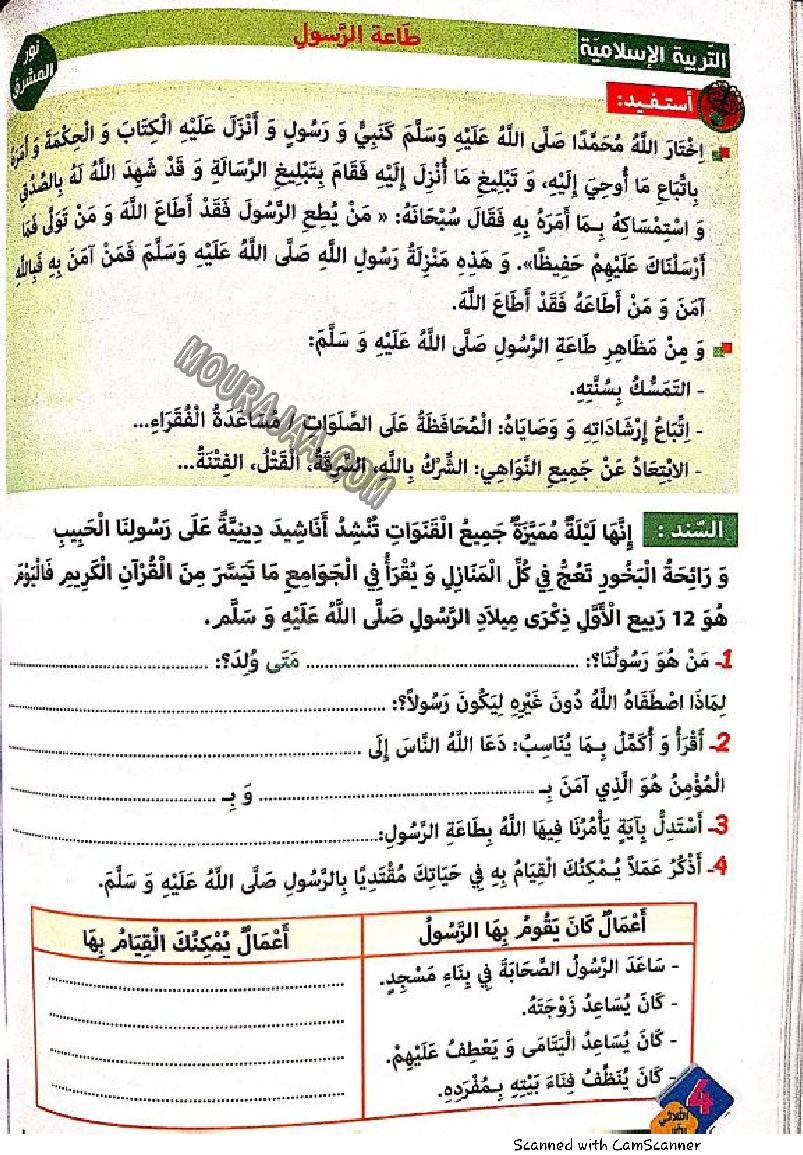 التربية الإسلامية
طَاعَة الرَّسولِ
نور المشرق
أستفيد:
اِخْتَارَ اللَّهُ مُحَمَّدًا صَلَّى اللَّهُ عَلَيْهِ وَسَلَّمَ كَنَبِيٍّ وَ رَسُولٍ وَ أَنْزَلَ عَلَيْهِ الْكِتَابَ وَ الْحِكْمَةَ وَ أَمَرَهُ
بِاتِّبَاعِ مَا أُوحِيَ إِلَيْهِ، وَ تَبْلِيغِ مَا أُنْزِلَ إِلَيْهِ فَقَامَ بِتَبْلِيغِ الرِّسَالَةِ وَ قَدْ شَهِدَ اللَّهُ لَهُ بِالصِّدْقِ
وَ اسْتِمْسَاكِهُ بِـمَا أَمَرَهُ بِهِ فَقَالَ سُبْحَانَهُ: « مَنْ يُطِعِ الرَّسُولَ فَقَدْ أَطَاعَ اللَّهَ وَ مَنْ تَوَلَّى فَمَا
أَرْسَلْنَاكَ عَلَيْهِمْ حَفِيظًا». وَ هَذِهِ مَنْزِلَةُ رَسُولِ اللَّهِ صَلَّى اللَّهُ عَلَيْهِ وَسَلَّمَ فَمَنْ آمَنَ بِهِ فَبِاللَّهِ
آمَنَ وَ مَنْ أَطَاعَهُ فَقَدْ أَطَاعَ اللَّهَ.
وَ مِنْ مَظَاهِرِ طَاعَةِ الرَّسُولِ صَلَّى اللَّهُ عَلَيْهِ وَ سَلَّمَ:
- التَمَسُّكُ بِسُنَّتِهِ.
- اِتِّبَاعُ إِرْشَادَاتِهِ وَ وَصَايَاهُ: الْمُحَافَظَةُ عَلَى الصَّلَوَاتِ / مُسَاعَدَةُ الْفُقَرَاءِ...
- الاِبْتِعَادُ عَنْ جَمِيعِ النَّوَاهِي: الشِّرْكُ بِاللَّهِ، السَّرِقَةُ، الْقَتْلُ، الفِتْنَةُ...
MOURAJAA.COM
السّند : إِنَّهَا لَيْلَةٌ مُمَيَّزَةٌ جَمِيعُ الْقَنَوَاتِ تُنْشِدُ أَنَاشِيدَ دِينِيَّةً عَلَى رَسُولِنَا الْحَبِيبِ
وَ رَائِحَةُ الْبَخُورِ تَعُجُّ فِي كُلِّ الْمَنَازِلِ وَ يُقْرَأُ فِي الْجَوَامِعِ مَا تَيَسَّرَ مِنَ الْقُرْآنِ الْكَرِيمِ فَالْيَوْمَ
هُوَ 12 رَبِيع الْأَوَّلِ ذِكْرَى مِيلَادِ الرَّسُولِ صَلَّى اللَّهُ عَلَيْهِ وَ سَلَّم.
1- مَنْ هُوَ رَسُولُنَا؟: .................... مَتَى وُلِدَ؟: ....................
لِمَاذَا اصْطَفَاهُ اللَّهُ دُونَ غَيْرِهِ لِيَكُونَ رَسُولاً؟: ....................
2- أَقْرَأُ وَ أُكَمِّلُ بِـمَا يُنَاسِبُ: دَعَا اللَّهُ النَّاسَ إِلَى ....................
الْمُؤْمِنُ هُوَ الَّذِي آمَنَ بِـ .................... وَ بِـ ....................
3- أَسْتَدِلُّ بِآيَةٍ يَأْمُرُنَا فِيهَا اللَّهُ بِطَاعَةِ الرَّسُولِ: ....................
4- أَذْكُرُ عَمَلاً يُـمْكِنُكَ الْقِيَامُ بِهِ فِي حَيَاتِكَ مُقْتَدِيًا بِالرَّسُولِ صَلَّى اللَّهُ عَلَيْهِ وَ سَلَّمَ.
أَعْمَالٌ كَانَ يَقُومُ بِهَا الرَّسُولُ
أَعْمَالٌ يُمْكِنُكَ الْقِيَامُ بِهَا
- سَاعَدَ الرَّسُولُ الصَّحَابَةَ فِي بِنَاءِ مَسْجِدٍ.
- كَانَ يُسَاعِدُ زَوْجَتَهُ.
- كَانَ يُسَاعِدُ الْيَتَامَى وَ يَعْطِفُ عَلَيْهِمْ.
- كَانَ يُنَظِّفُ فِنَاءَ بَيْتِهِ بِـمُفْرَدِهِ.
4
الثلاثي
Scanned with CamScanner